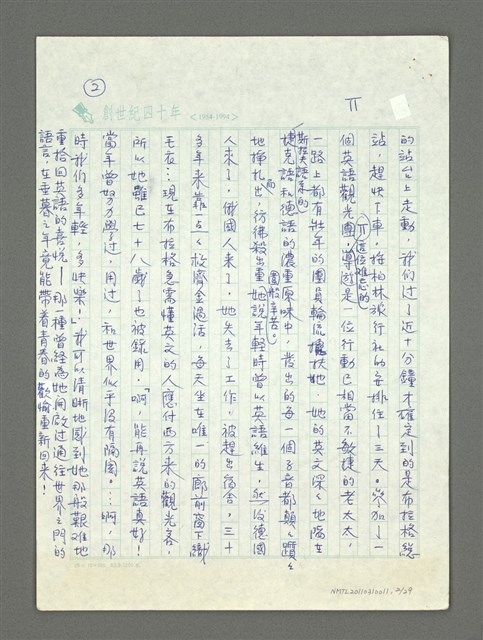 ②
創世紀四十年 <1954-1994>
II
的站台上走動，我們过了近十分鐘才確定到的是布拉格總
站，趕快下車，按柏林旅行社的安排住了三天。參加了一
個英語觀光團，導遊是一位行動已相當不敏捷的老太太，
(II這位難忘的)
一路上都有壯年的團員輪流攙扶她。她的英文深深地陷在
(斯拉夫語系的)
捷克語和德語的濃重原味中，發出的每一個子音都顛顛躓躓
地掙扎出，彷彿殺出重圍般辛苦。她說年輕時曾以英語維生，然後德國
而
人來了，俄國人來了，她失去了工作，被趕出宿舍，三十
多年來靠一点点救濟金過活，每天坐在唯一的廊前窗下織
毛衣…現在布拉格急需懂英文的人應付西方來的觀光客，
所以她雖已七十八歲了也被錄用。「啊，能再說英語真好！
當年曾努力學过，用过，和世界似乎沒有隔閡。…啊，那
時我們多年輕，多快樂！」我可以清晰地感到她那般艱难地
重拾回英語的喜悅——那一種曾經为她開啟过通往世界之門的
語言，在垂暮之年竟能帶着青春的歡愉重新回來！
NMTL20110310011. 2/29